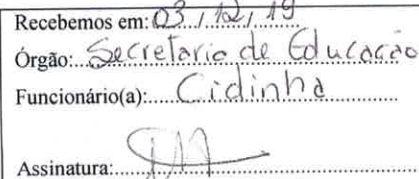 Recebemos em: 03 / 12 / 19
Órgão: Secretario de Educação
Funcionário(a): Cidinha
Assinatura: